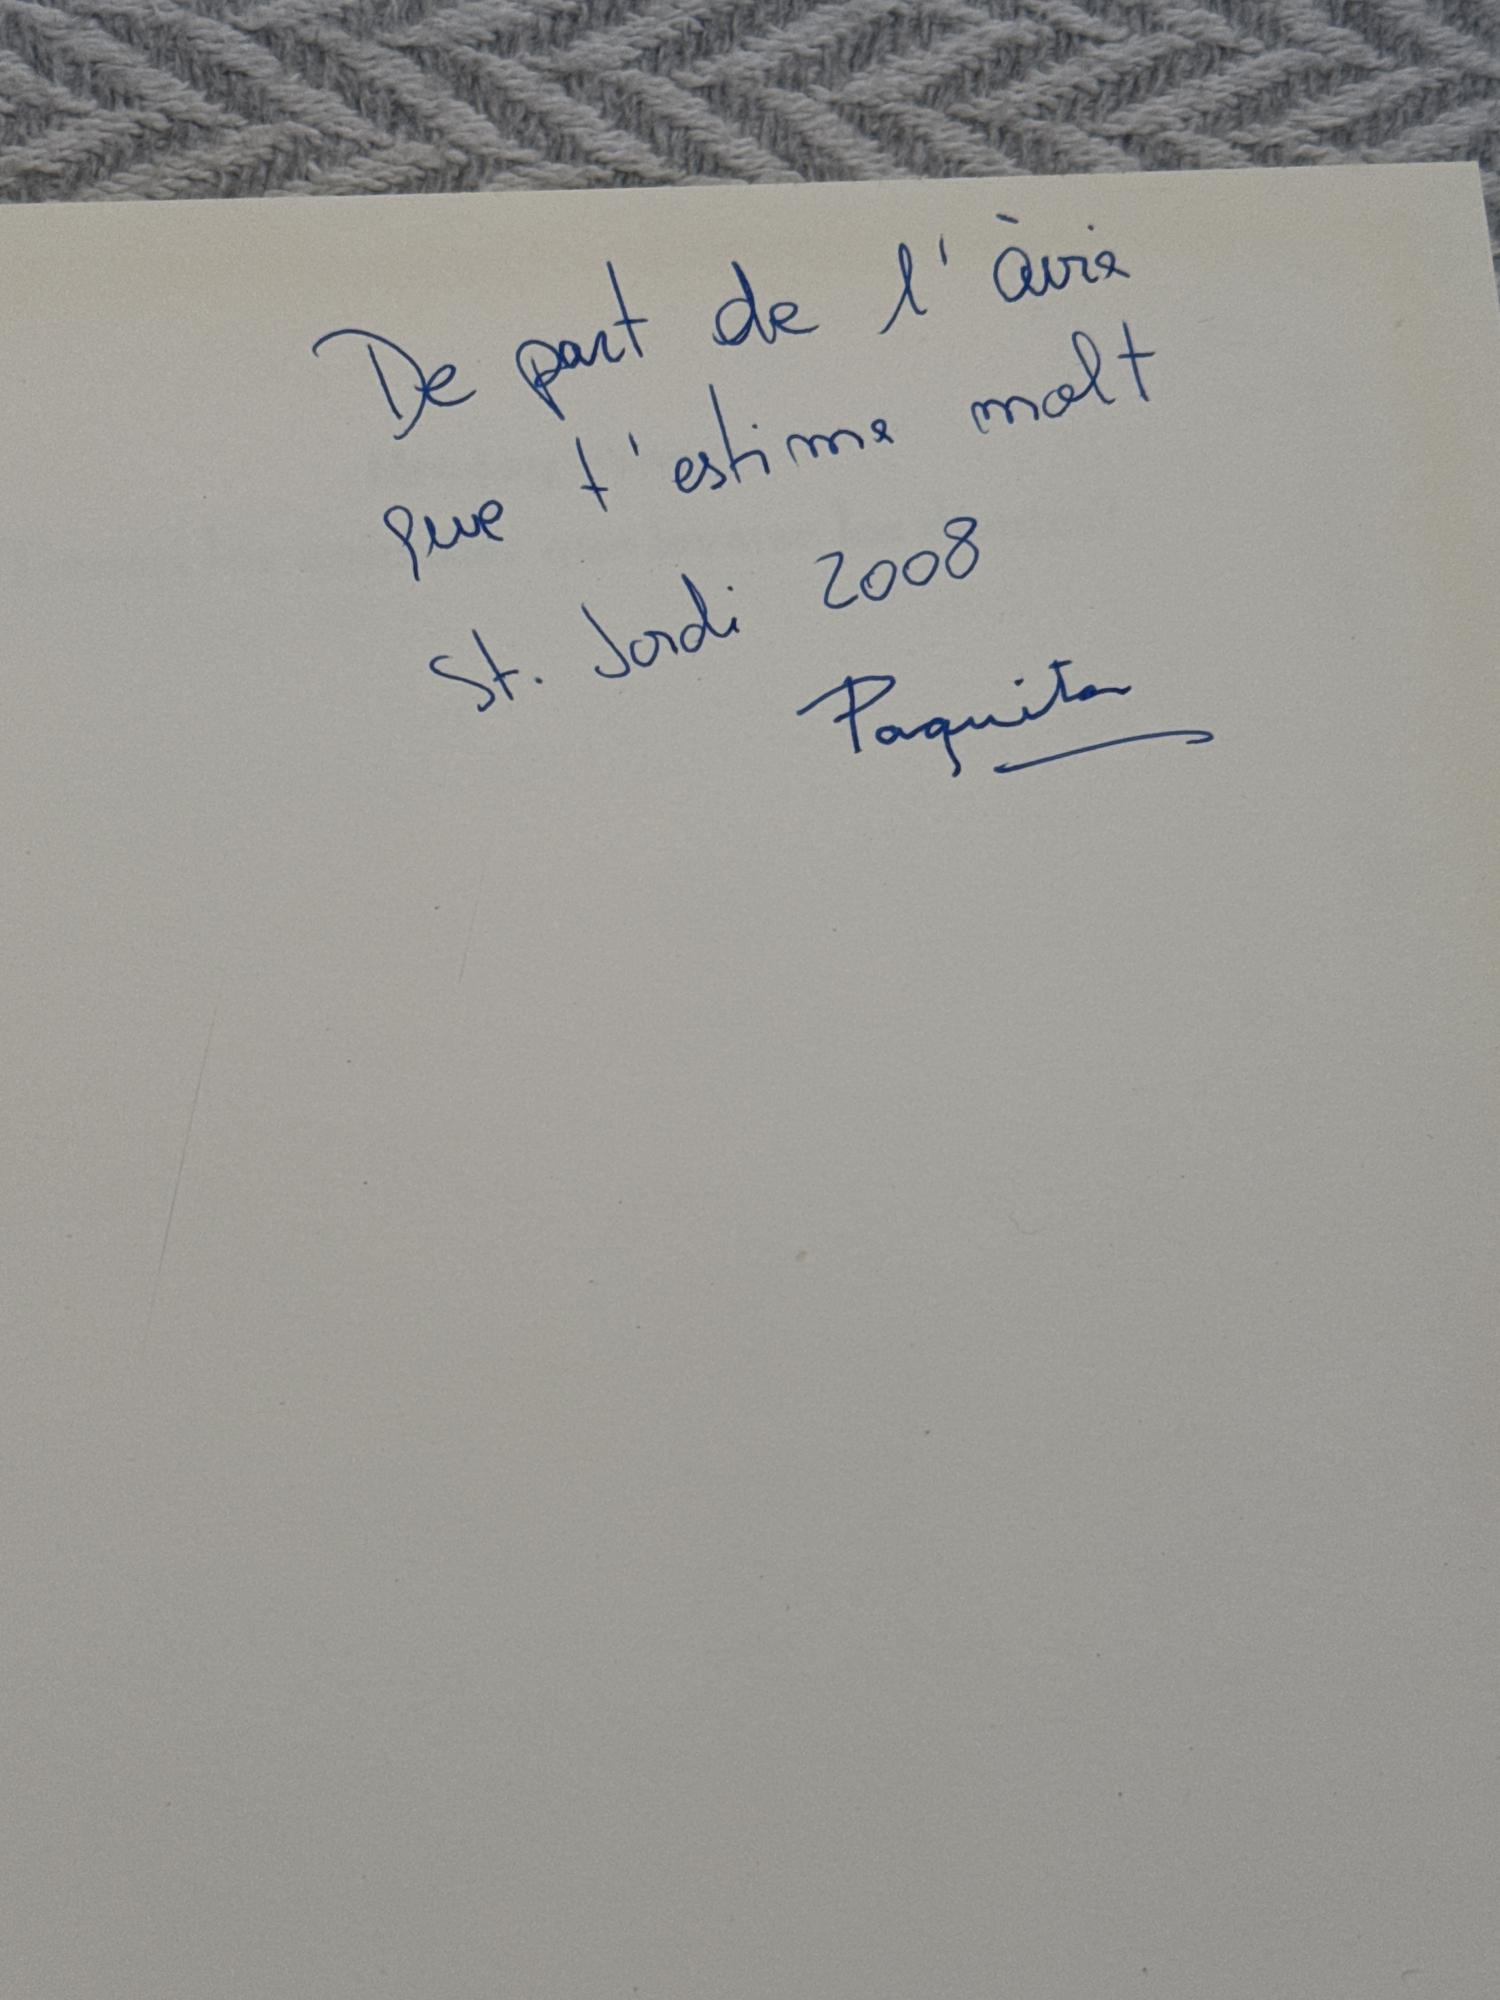 De part de l'àvia
que t'estima molt
St. Jordi 2008
Paquita